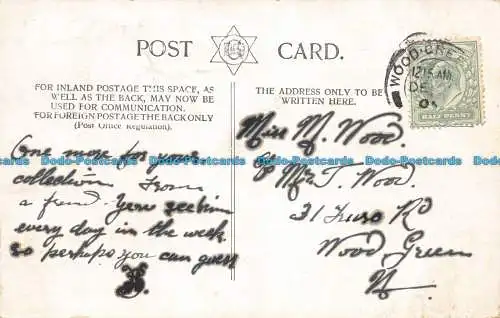 POST CARD.
FOR INLAND POSTAGE THIS SPACE, AS
WELL AS THE BACK, MAY NOW BE
USED FOR COMMUNICATION.
FOR FOREIGN POSTAGE THE BACK ONLY
(Post Office Regulation).
THE ADDRESS ONLY TO BE
WRITTEN HERE.
WOOD GREE
12.15 AM
DE
HALF PENNY
One more for your
collection From
a friend. You see him
every day in the week
so perhaps you can guess
Miss M. Wood.
Mr T. Wood.
31 Truro Rd
Wood Green
N
Dodo-Postcards Dodo-Postcards Dodo-Postcards Dodo-Postcards Dodo-Postcards